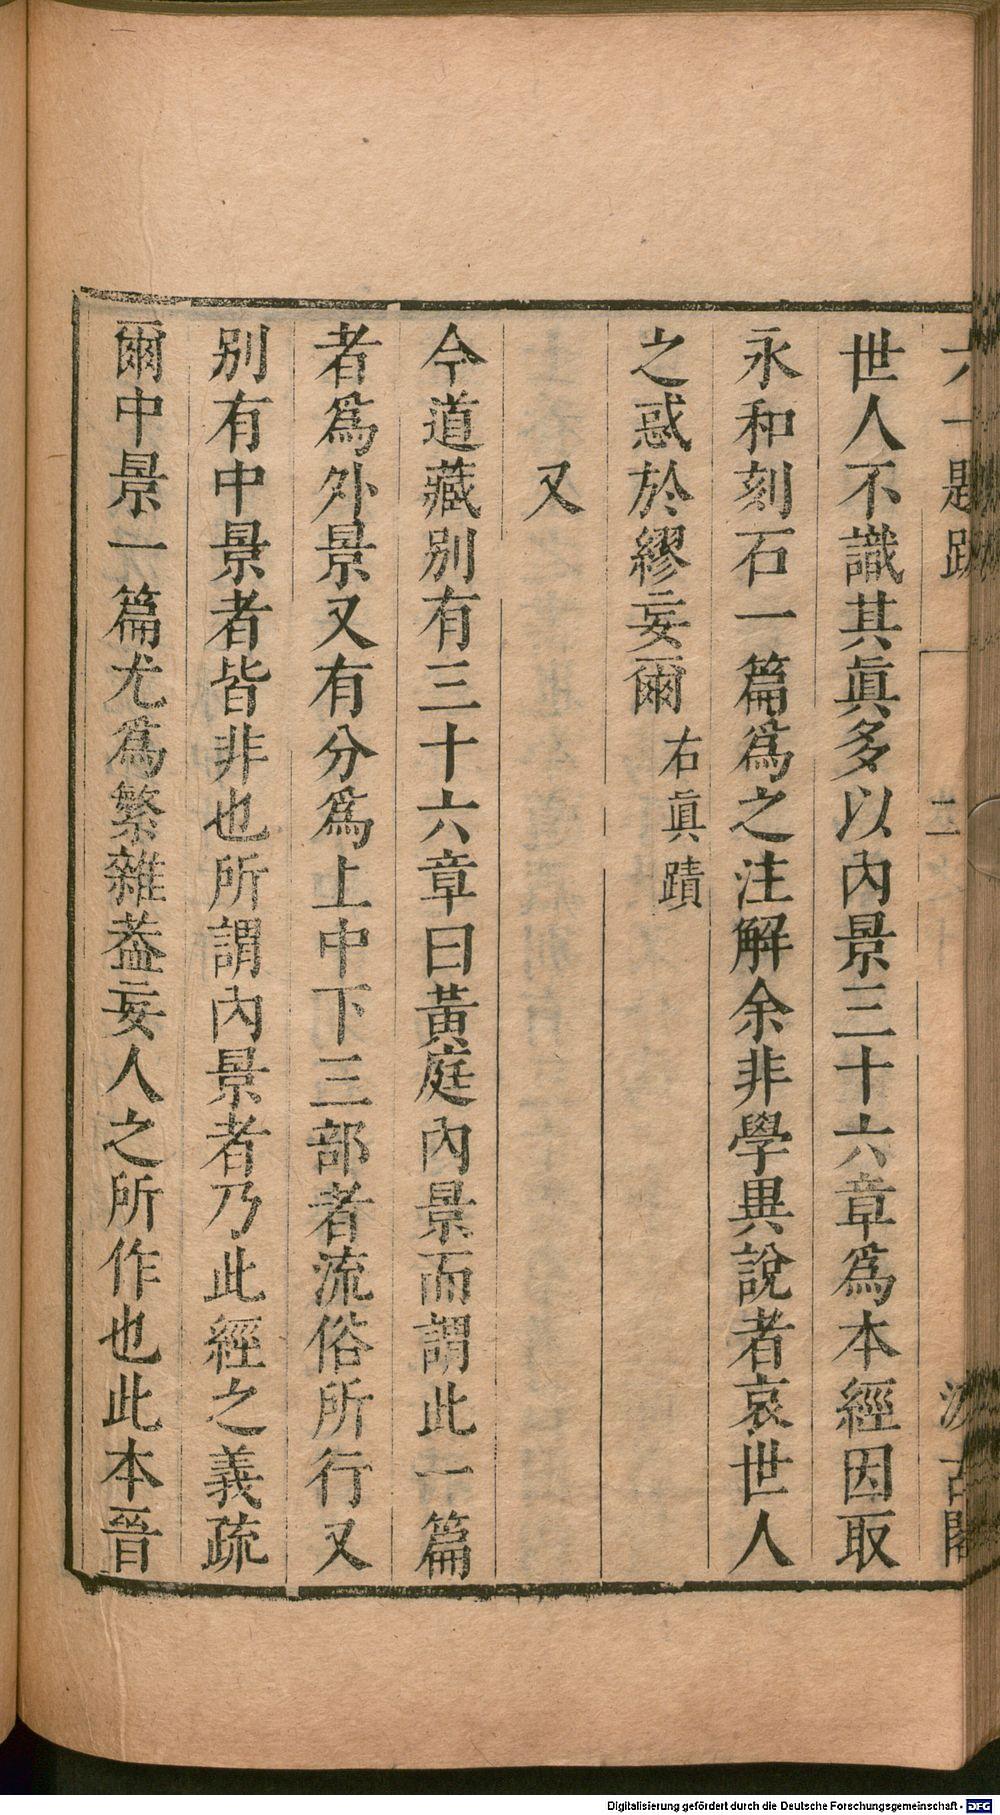 六一題跋 二 汲古閣
世人不識其眞多以內景三十六章爲本經因取
永和刻石一篇爲之注解余非學異說者哀世人
之惑於繆妄爾 右眞蹟
又
今道藏別有三十六章曰黃庭內景而謂此一篇
者爲外景又有分爲上中下三部者流俗所行又
別有中景者皆非也所謂內景者乃此經之義疏
爾中景一篇尤爲繁雜葢妄人之所作也此本晉
Digitalisierung gefördert durch die Deutsche Forschungsgemeinschaft - DFG